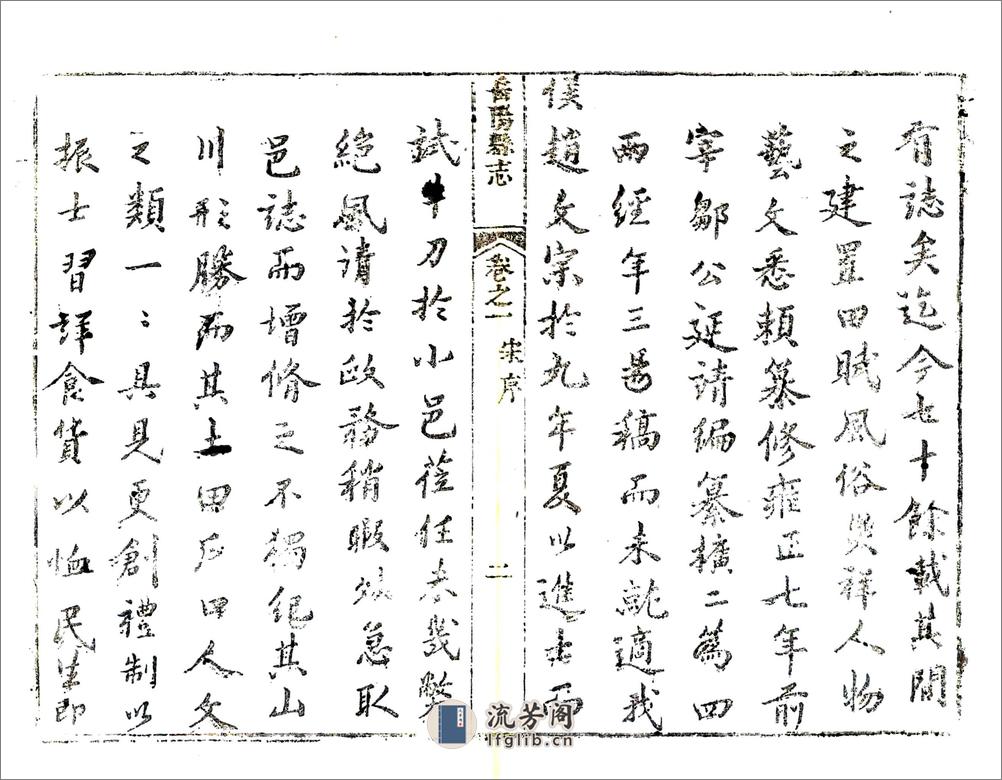 有誌矣迄今七十餘載其間
之建置田賦風俗災祥人物
藝文悉賴纂修雍正七年前
宰鄒公延請編纂擴二為四
兩經年三易稿而未就適我
侯趙文宗於九年夏以進士而
岳陽縣志
卷之一
宋序
二
試牛刀於小邑蒞任未幾弊
絕風清於政務稍暇炊急取
邑誌而增脩之不獨紀其山
川形勝而其土田戶口人文
之類一〻具見更創禮制以
振士習詳食貨以恤民生即
流芳阁
lfglib.cn